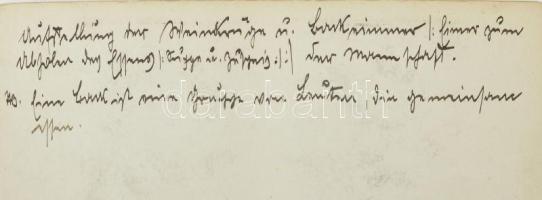 Aufstellung der Weinkrüge u. Backeimmer /: Eimer zum
Abholen des Essens /: Suppe u. Zuspeis :/:/ der Mannschaft.
40. Eine Back ist eine Gruppe von Leuten, die gemeinsam
essen.
darabanth.com